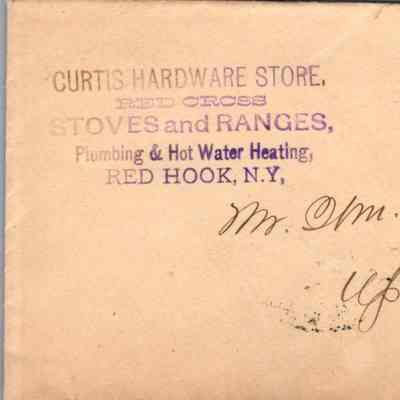 CURTIS HARDWARE STORE,
RED CROSS
STOVES and RANGES,
Plumbing & Hot Water Heating,
RED HOOK, N.Y,
Mr. Wm.